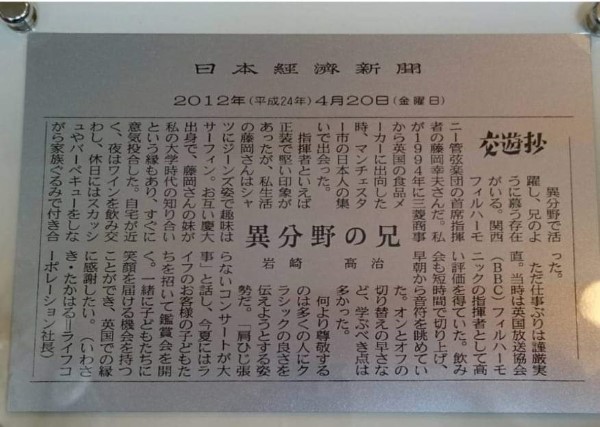 日本経済新聞
2012年(平成24年)4月20日(金曜日)
交遊抄
異分野の兄
岩崎高治
異分野で活
躍し、兄のよ
うに慕う存在
がいる。関西
フィルハーモ
ニー管弦楽団の首席指揮
者の藤岡幸夫さんだ。私
が1994年に三菱商事
から英国の食品メ
ーカーに出向した
時、マンチェスタ
ー市の日本人の集
いで出会った。
指揮者といえば
正装で堅い印象が
あったが、私生活
の藤岡さんはシャ
ツにジーンズ姿で趣味は
サーフィン。お互い慶大
出身で、藤岡さんの妹が
私の大学時代の知り合い
という縁もあり、すぐに
意気投合した。自宅が近
く、夜はワインを飲み交
わし、休日にはスカッシ
ュやバーベキューをしな
がら家族ぐるみで付き合
った。
ただ仕事ぶりは謹厳実
直。当時は英国放送協会
(BBC)フィルハーモ
ニックの指揮者として高
い評価を得ていた。飲み
会も短時間で切り上げ、
早朝から音符を眺めてい
た。オンとオフの
切り替えの早さな
ど、学ぶべき点は
多かった。
何より尊敬する
のは多くの人にク
ラシックの良さを
伝えようとする姿
勢だ。「肩ひじ張
らないコンサートが大
事」と話し、今夏にはラ
イフのお客様の子どもた
ちを招いて鑑賞会を開
く。一緒に子どもたちに
笑顔を届ける機会を持つ
ことができ、英国での縁
に感謝したい。(いわさ
き・たかはる=ライフコ
ーポレーション社長)